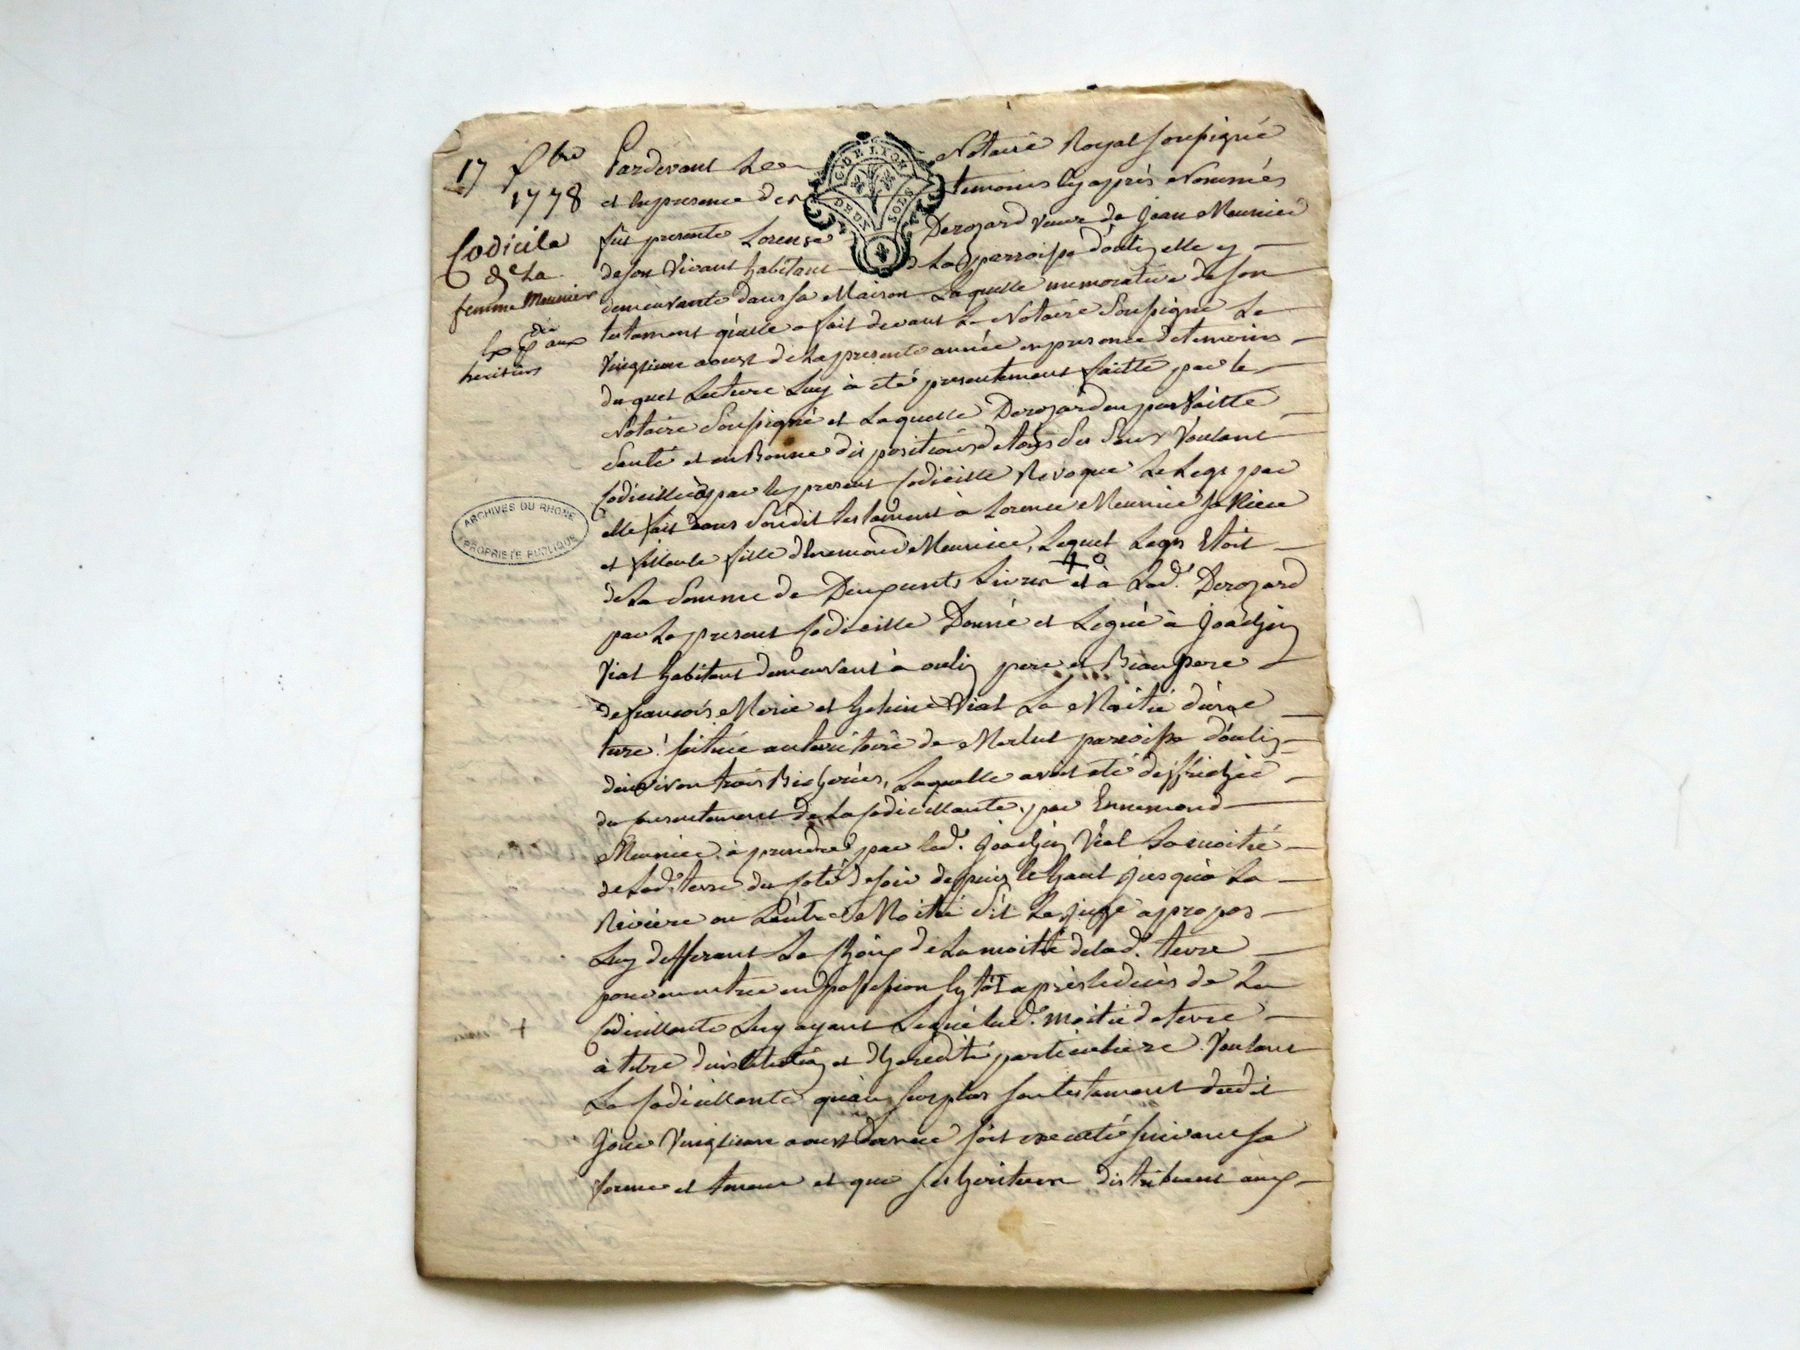 17 
1778
Codicile
de La
femme Meunier
aux
heritiers
G. DE LYON
DEUX SOLS
ARCHIVES DU RHONE
PROPRIETE PUBLIQUE
Pardevant Le Notaire Royal soussigné
et en presence des temoins cy après Nommés
fut presente Lorense Derozard veuve de Jean Meunier
de son vivant habitant de La parroisse d'oulin elle y
demeurante dans sa Maison Laquelle memorative de son
testament qu'elle a fait devant Le Notaire soussigné Le
vingtieme aoust de La presente année en presence de temoins
du quel Lecture Luy à eté presentement faitte par le
Notaire soussigné et Laquelle Derozard en parfaitte
santé et en Bonne dispositions de tous ses sens voulant
codiciller par le present codicille Revoque Le Legs par
elle fait dans sondit testament à Lorence Meunier sa Niece
et filleule fille d'Enemond Meunier, Lequel Legs Etoit
de La somme de Deux cents Livres et à Lad. Derozard
par Le present codicille Donné et Legué à Joachin
Vial habitant demeurant à oulin pere et Beaupere
de francois Marie et Vial La Moitié d'une
terre situëe au territoire de Merlus parroisse d'oulin
d'environ trois Bicherées, Laquelle avoit eté deffrichée
du consentement de La codicillante, par Ennemond
Meunier à prendre par led. Joachin Vial La moitié
de Lad. terre du coté de soir depuis le haut jusqu'à La
Riviere ou L'autre Moitié s'il Le juge apropos
Luy defferant Le Choix de La moitié de Lad. terre
pour en entrer en possession sytot après le decès de La
+ codicillante Luy ayant Legué lad. moitié de terre
à titre d'institution et d'heredité particuliere voulant
La codicillante qu'au surplus son testament dudit
jour vingtieme aoust dernier soit executé suivant sa
forme et teneur et que ses heritiers distribuent aux